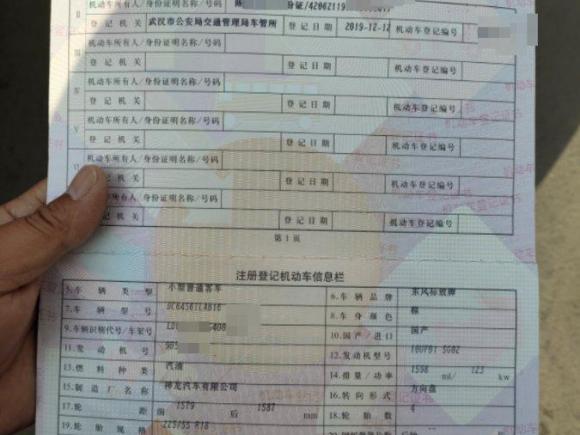 机动车所有人/身份证明名称/号码
份证/42062119
登记机关 武汉市公安局交通管理局车管所 登记日期 2019-12-17 机动车登记编号
机动车所有人/身份证明名称/号码
登记机关 登记日期 机动车登记编号
IV 机动车所有人/身份证明名称/号码
登记机关 登记日期 机动车登记编号
V 机动车所有人/身份证明名称/号码
登记机关 登记日期 机动车登记编号
机动车所有人/身份证明名称/号码
登记机关 登记日期 机动车登记编号
所有人/身份证明名称/号码
登记机关 登记日期 机动车登记编号
第1页
注册登记机动车信息栏
5.车辆类型 小型普通客车 6.车辆品牌 东风标致牌
7.车辆型号 8.车身颜色 棕
9.车辆识别代号/车架号 10.国产/进口 国产
11.发动机号 12.发动机型号
13.燃料种类 汽油 14.排量/功率 1598 ml/ 123 kw
15.制造厂名称 神龙汽车有限公司 16.转向形式 方向盘
17.轮距 前 1579 后 1587 mm 18.轮胎数 4
19.轮胎规格 225/55 R18